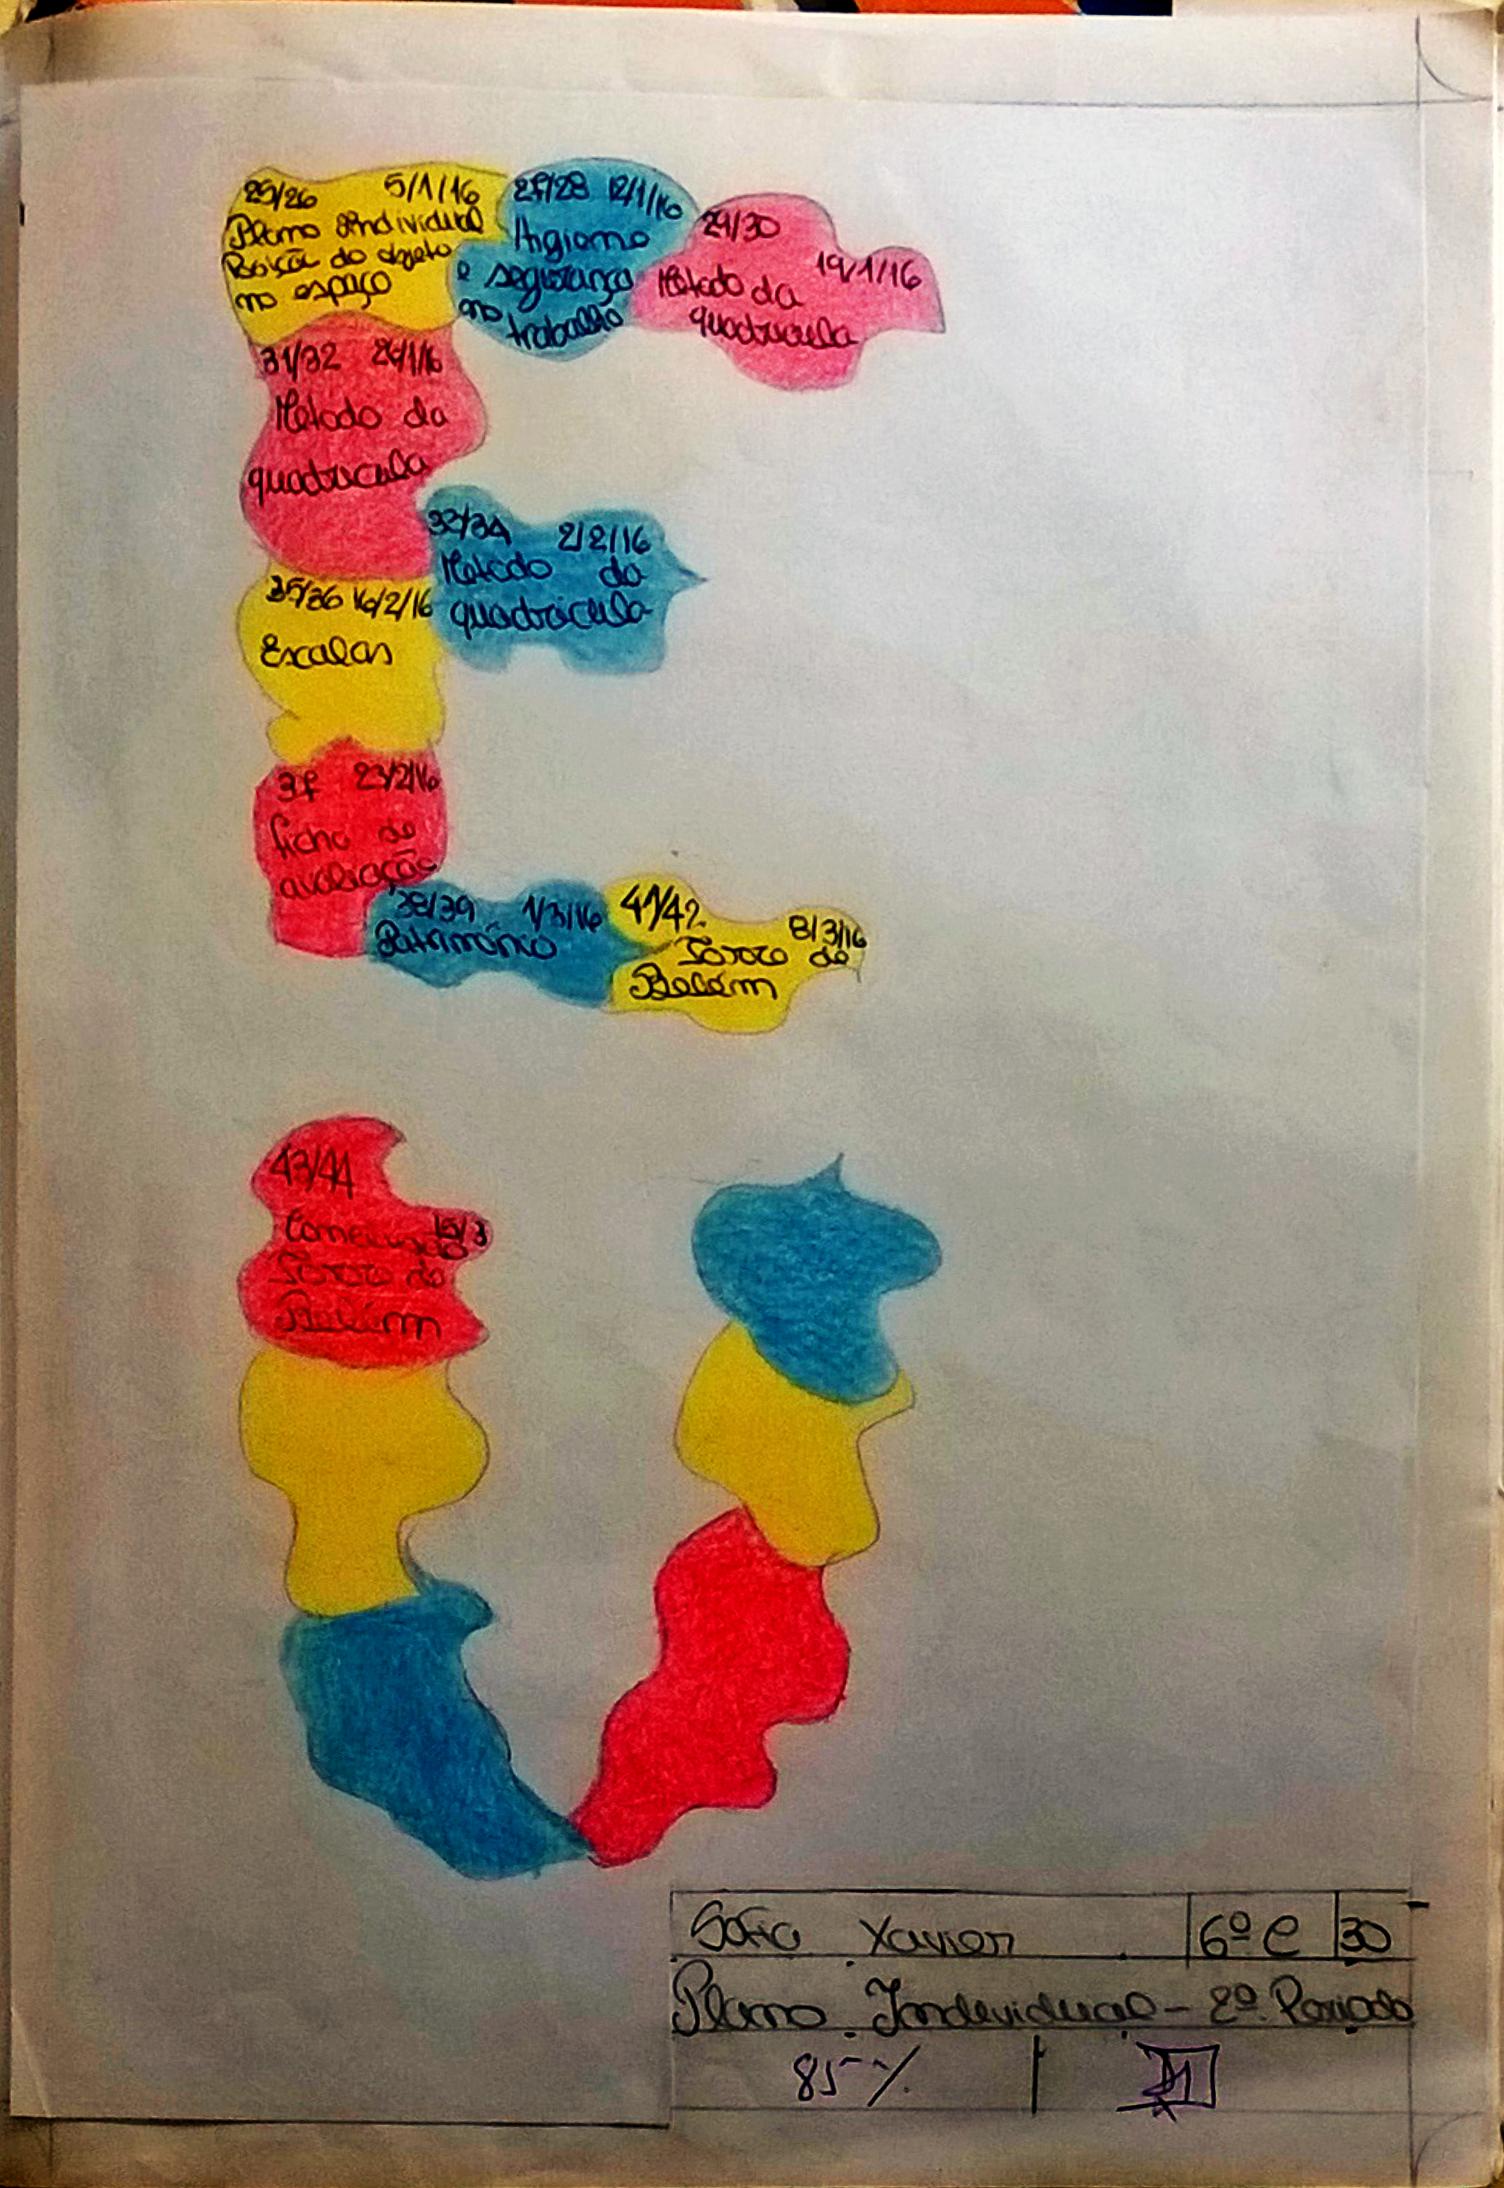 25/26 5/1/16
Plano Individual
Posição do objeto
no espaço
27/28 12/1/16
Higiene
e segurança
no
trabalho
29/30
19/1/16
Metodo da
quadricula
31/32 26/1/16
Metodo da
quadricula
33/34 2/2/16
Metodo da
quadricula
35/36 16/2/16
Escalas
37 23/2/16
ficha de
avaliação
38/39 1/3/16
Património
41/42
8/3/16
Torre de
Belém
43/44
15/3
Torre de
Belém
Sofia Xavier 6º C 30
Plano Indevidual - 2º Periodo
85%